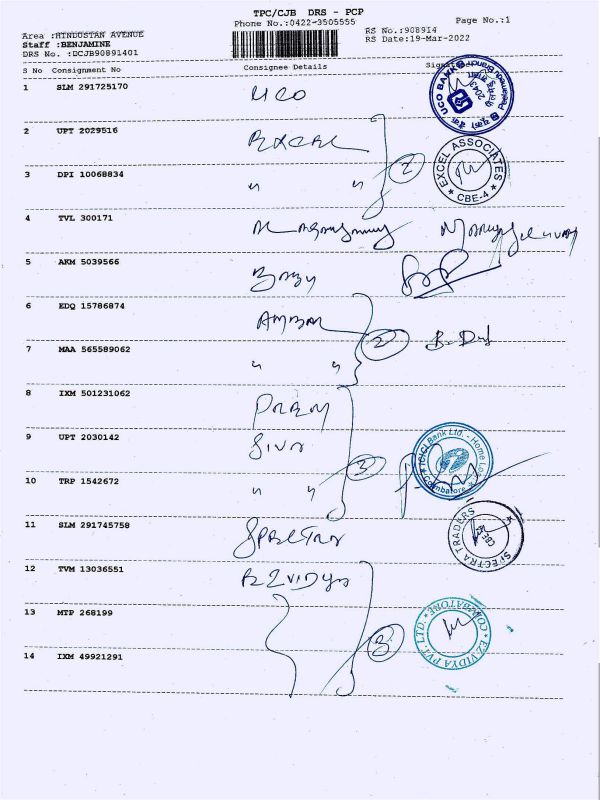 TPC/CJB DRS - PCP
Phone No.:0422-3505555
Page No.:1
Area :HINDUSTAN AVENUE
RS No.:908914
Staff :BENJAMINE
RS Date:19-Mar-2022
DRS No. :DCJB90891401
S No Consignment No Consignee Details
1 SLM 291725170 UCO
UCO BANK
2043
2 UPT 2029516 EXCEL
EXCEL ASSOCIATES
★ CBE-4 ★
3 DPI 10068834 " "
2
4 TVL 300171
5 AKM 5039566
6 EDQ 15786874 AMBAL
7 MAA 565589062 " "
2
8 IXM 501231062 PREM
9 UPT 2030142 SIVA
ICICI Bank Ltd. - Home Loa
Coimbatore
10 TRP 1542672 " "
3
11 SLM 291745758 SPECTRA
SPECTRA TRADERS
12 TVM 13036551 EZVIDYA
13 MTP 268199
E.Z.VIDYA PVT. LTD. * COIMBATORE *
3
14 IXM 49921291